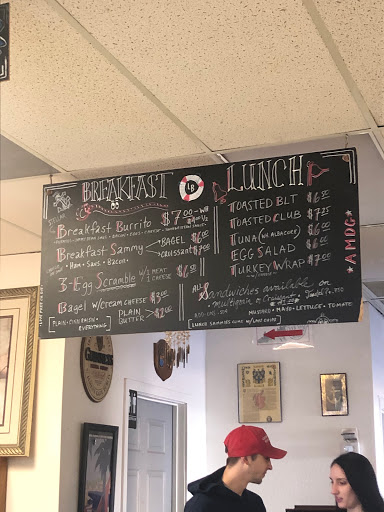 BREAKFAST
LB
LUNCH
Breakfast Burrito $7.00 - WH
$4.00 1/2
Breakfast Sammy
• Ham • Saus • Bacon •
BAGEL $6.00
CROISSANT $7.00
3-Egg Scramble W/1 MEAT
1 CHEESE $6.50
Bagel W/CREAM CHEESE $3.00
PLAIN
BUTTER $2.00
PLAIN • CINN RAISIN •
EVERYTHING
TOASTED BLT $6.50
TOASTED CLUB $7.25
TUNA (WE ALBACORE) $6.50
EGG SALAD $6.00
TURKEY WRAP $7.00
ALL Sandwiches available on
multigrain or Croissant
MUSTARD • MAYO • LETTUCE • TOMATO
LUNCH SAMMIES COME W/
AMDG